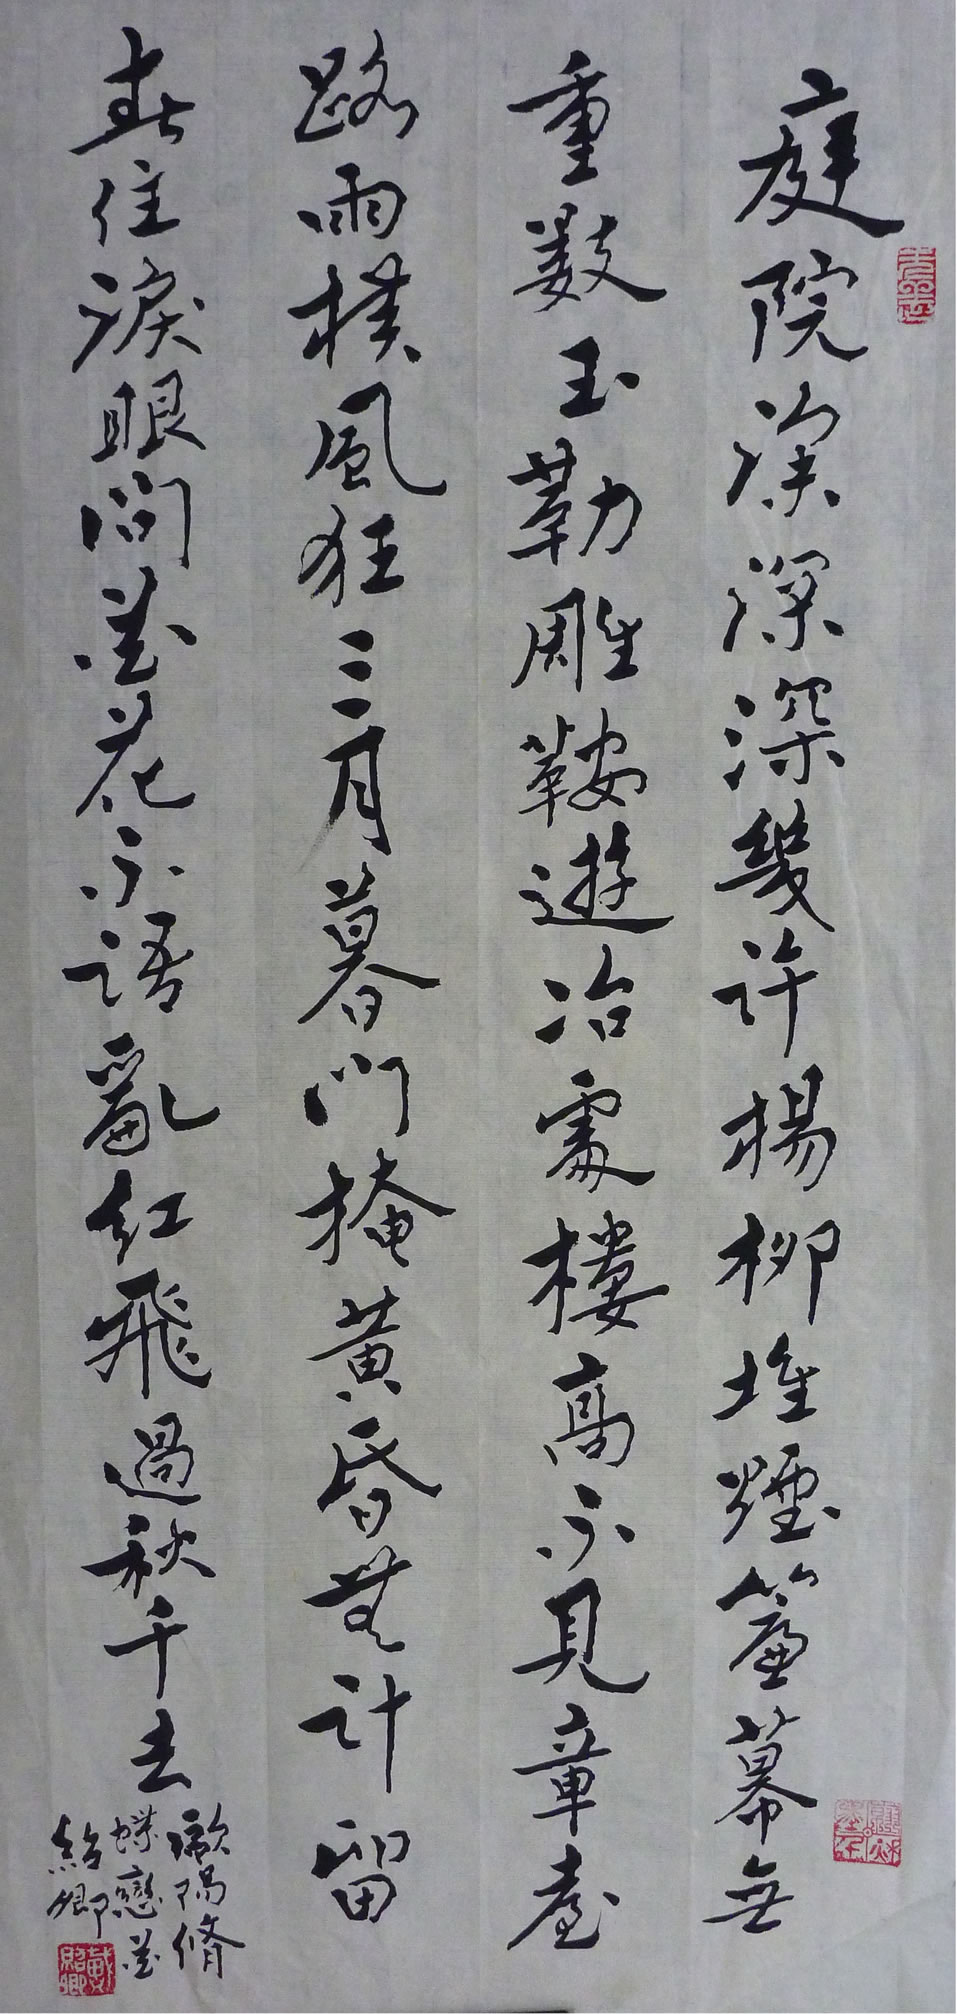 庭院深深深幾許楊柳堆煙簾幕無
重數玉勒雕鞍遊冶處樓高不見章臺
路雨橫風狂三月暮門掩黃昏無計留
春住淚眼問花花不語亂紅飛過秋千去
歐陽脩
蝶戀花
紹卿
戴紹卿